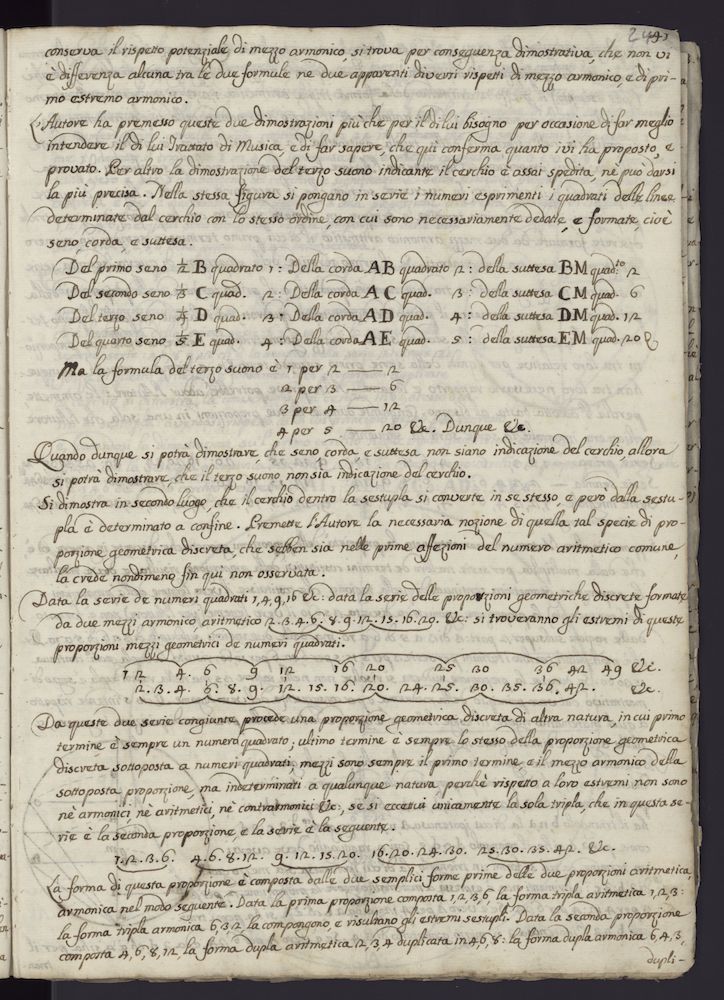 conserva il rispetto potenziale di mezzo armonico, si trova per conseguenza dimostrativa, che non vi
è differenza alcuna tra le due formule ne due apparenti diversi rispetti di mezzo armonico, e di pri-
mo estremo armonico.
L'Autore ha premesso queste due dimostrazioni più che per il di lui bisogno per occasione di far meglio
intendere il di lui Trattato di Musica, e di far sapere, che qui conferma quanto ivi ha proposto, e
provato. Per altro la dimostrazione del terzo suono indicante il cerchio è assai spedita, ne può darsi
la più precisa. Nella stessa figura si pongano in serie i numeri esprimenti i quadrati delle linee
determinate dal cerchio con lo stesso ordine, con cui sono necessariamente dedotte, e formate, cioè
seno, corda, e suttesa.
Del primo seno 1/2 B quadrato 1: Della corda AB quadrato 2: della suttesa BM quad:to 2
Del secondo seno 1/3 C quad. 2: Della corda AC quad. 3: della suttesa CM quad. 6
Del terzo seno 1/4 D quad. 3: Della corda AD quad. 4: della suttesa DM quad. 12
Del quarto seno 1/5 E quad. 4: Della corda AE quad. 5: della suttesa EM quad. 20 &
Ma la formula del terzo suono è 1 per 2 — 2
2 per 3 — 6
3 per 4 — 12
4 per 5 — 20 &c. Dunque &c.
Quando dunque si potrà dimostrare, che seno, corda, e suttesa non siano indicazione del cerchio, allora
si potrà dimostrare, che il terzo suono non sia indicazione del cerchio.
Si dimostra in secondo luogo, che il cerchio dentro la sestupla si converte in se stesso, e però dalla sestu-
pla è determinato a confine. Premette l'Autore la necessaria nozione di quella tal specie di pro-
porzione geometrica discreta, che sebben sia nelle prime affezioni del numero aritmetico comune,
la crede nondimeno fin qui non osservata.
Data la serie de numeri quadrati 1, 4, 9, 16 &c: data la serie delle proporzioni geometriche discrete formate
da due mezzi armonico, aritmetico 2. 3. 4. 6. 8. 9. 12. 15. 16. 20. &c: si troveranno gli estremi di queste
proporzioni mezzi geometrici de numeri quadrati.
1 2 4. 6 9 12 16 20 25 30 36 42 49 &c.
2. 3. 4. 6. 8. 9. 12. 15. 16. 20. 24. 25. 30. 35. 36. 42. &c.
Da queste due serie congiunte procede una proporzione geometrica discreta di altra natura, in cui primo
termine è sempre un numero quadrato; ultimo termine è sempre lo stesso della proporzione geometrica
discreta sottoposta a numeri quadrati; mezzi sono sempre il primo termine, e il mezzo armonico della
sottoposta proporzione, ma indeterminati a qualunque natura, perchè rispetto a loro estremi non sono
nè armonici, nè aritmetici, nè contrarmonici &c:, se si eccettui unicamente la sola tripla, che in questa se-
rie è la seconda proporzione, e la serie è la seguente.
1. 2. 3. 6. 4. 6. 8. 12. 9. 12. 15. 20. 16. 20. 24. 30. 25. 30. 35. 42. &c.
La forma di questa proporzione è composta dalle due semplici forme prime delle due proporzioni aritmetica,
armonica nel modo seguente. Data la prima proporzione composta 1, 2, 3, 6, la forma tripla aritmetica 1, 2, 3:
la forma tripla armonica 6, 3, 2 la compongono, e risultano gli estremi sestupli. Data la seconda proporzione
composta 4, 6, 8, 12, la forma dupla aritmetica 2, 3, 4 duplicata in 4, 6, 8: la forma dupla armonica 6, 4, 3,
dupli-